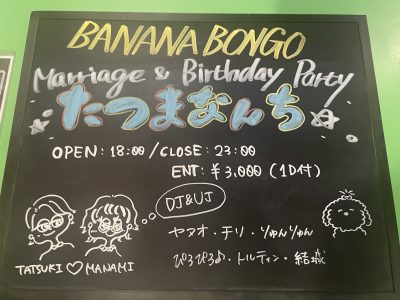 BANANA BONGO
Marriage & Birthday Party
たつまなんち
OPEN: 18:00 / CLOSE: 23:00
ENT: ¥3,000 (1D付)
DJ&UJ
ヤマオ・チリ・りゅんりゅん
ぴろぴろみ・トルティン・結城
TATSUKI♡MANAMI